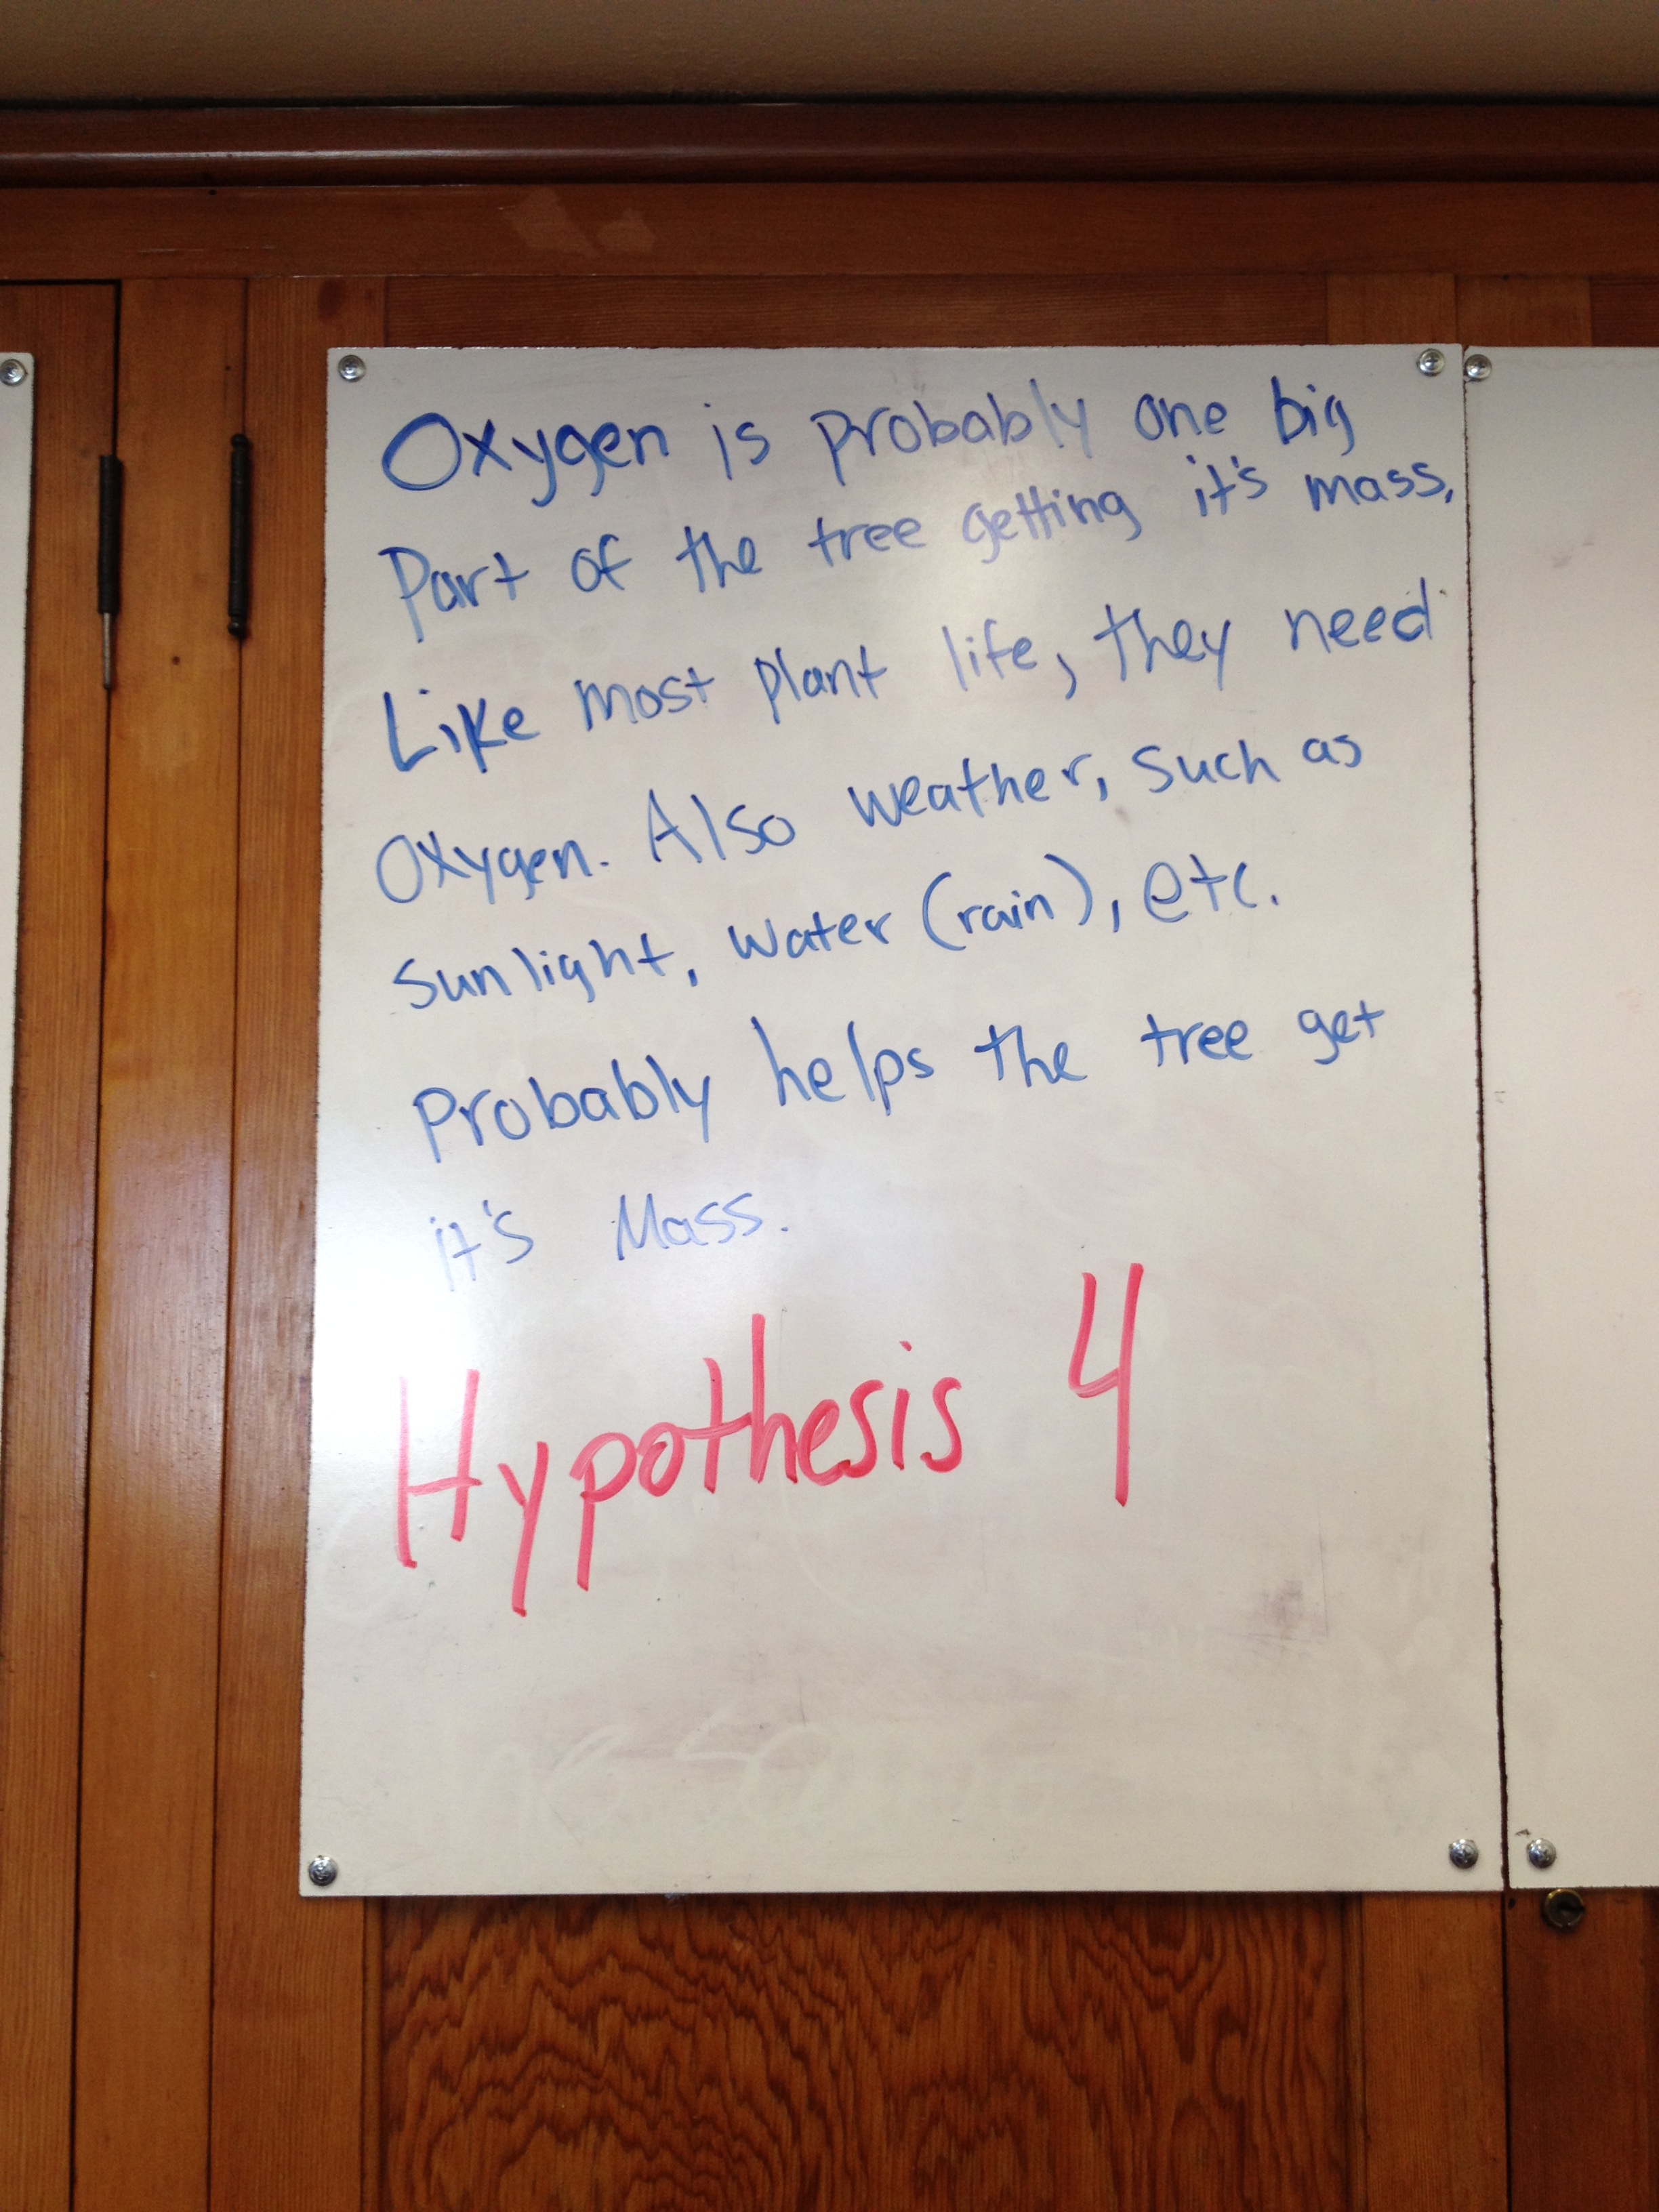 Oxygen is probably one big
Part of the tree getting it's mass.
Like most plant life, they need
Oxygen. Also weather, such as
sunlight, water (rain), etc.
Probably helps the tree get
it's Mass.
Hypothesis 4